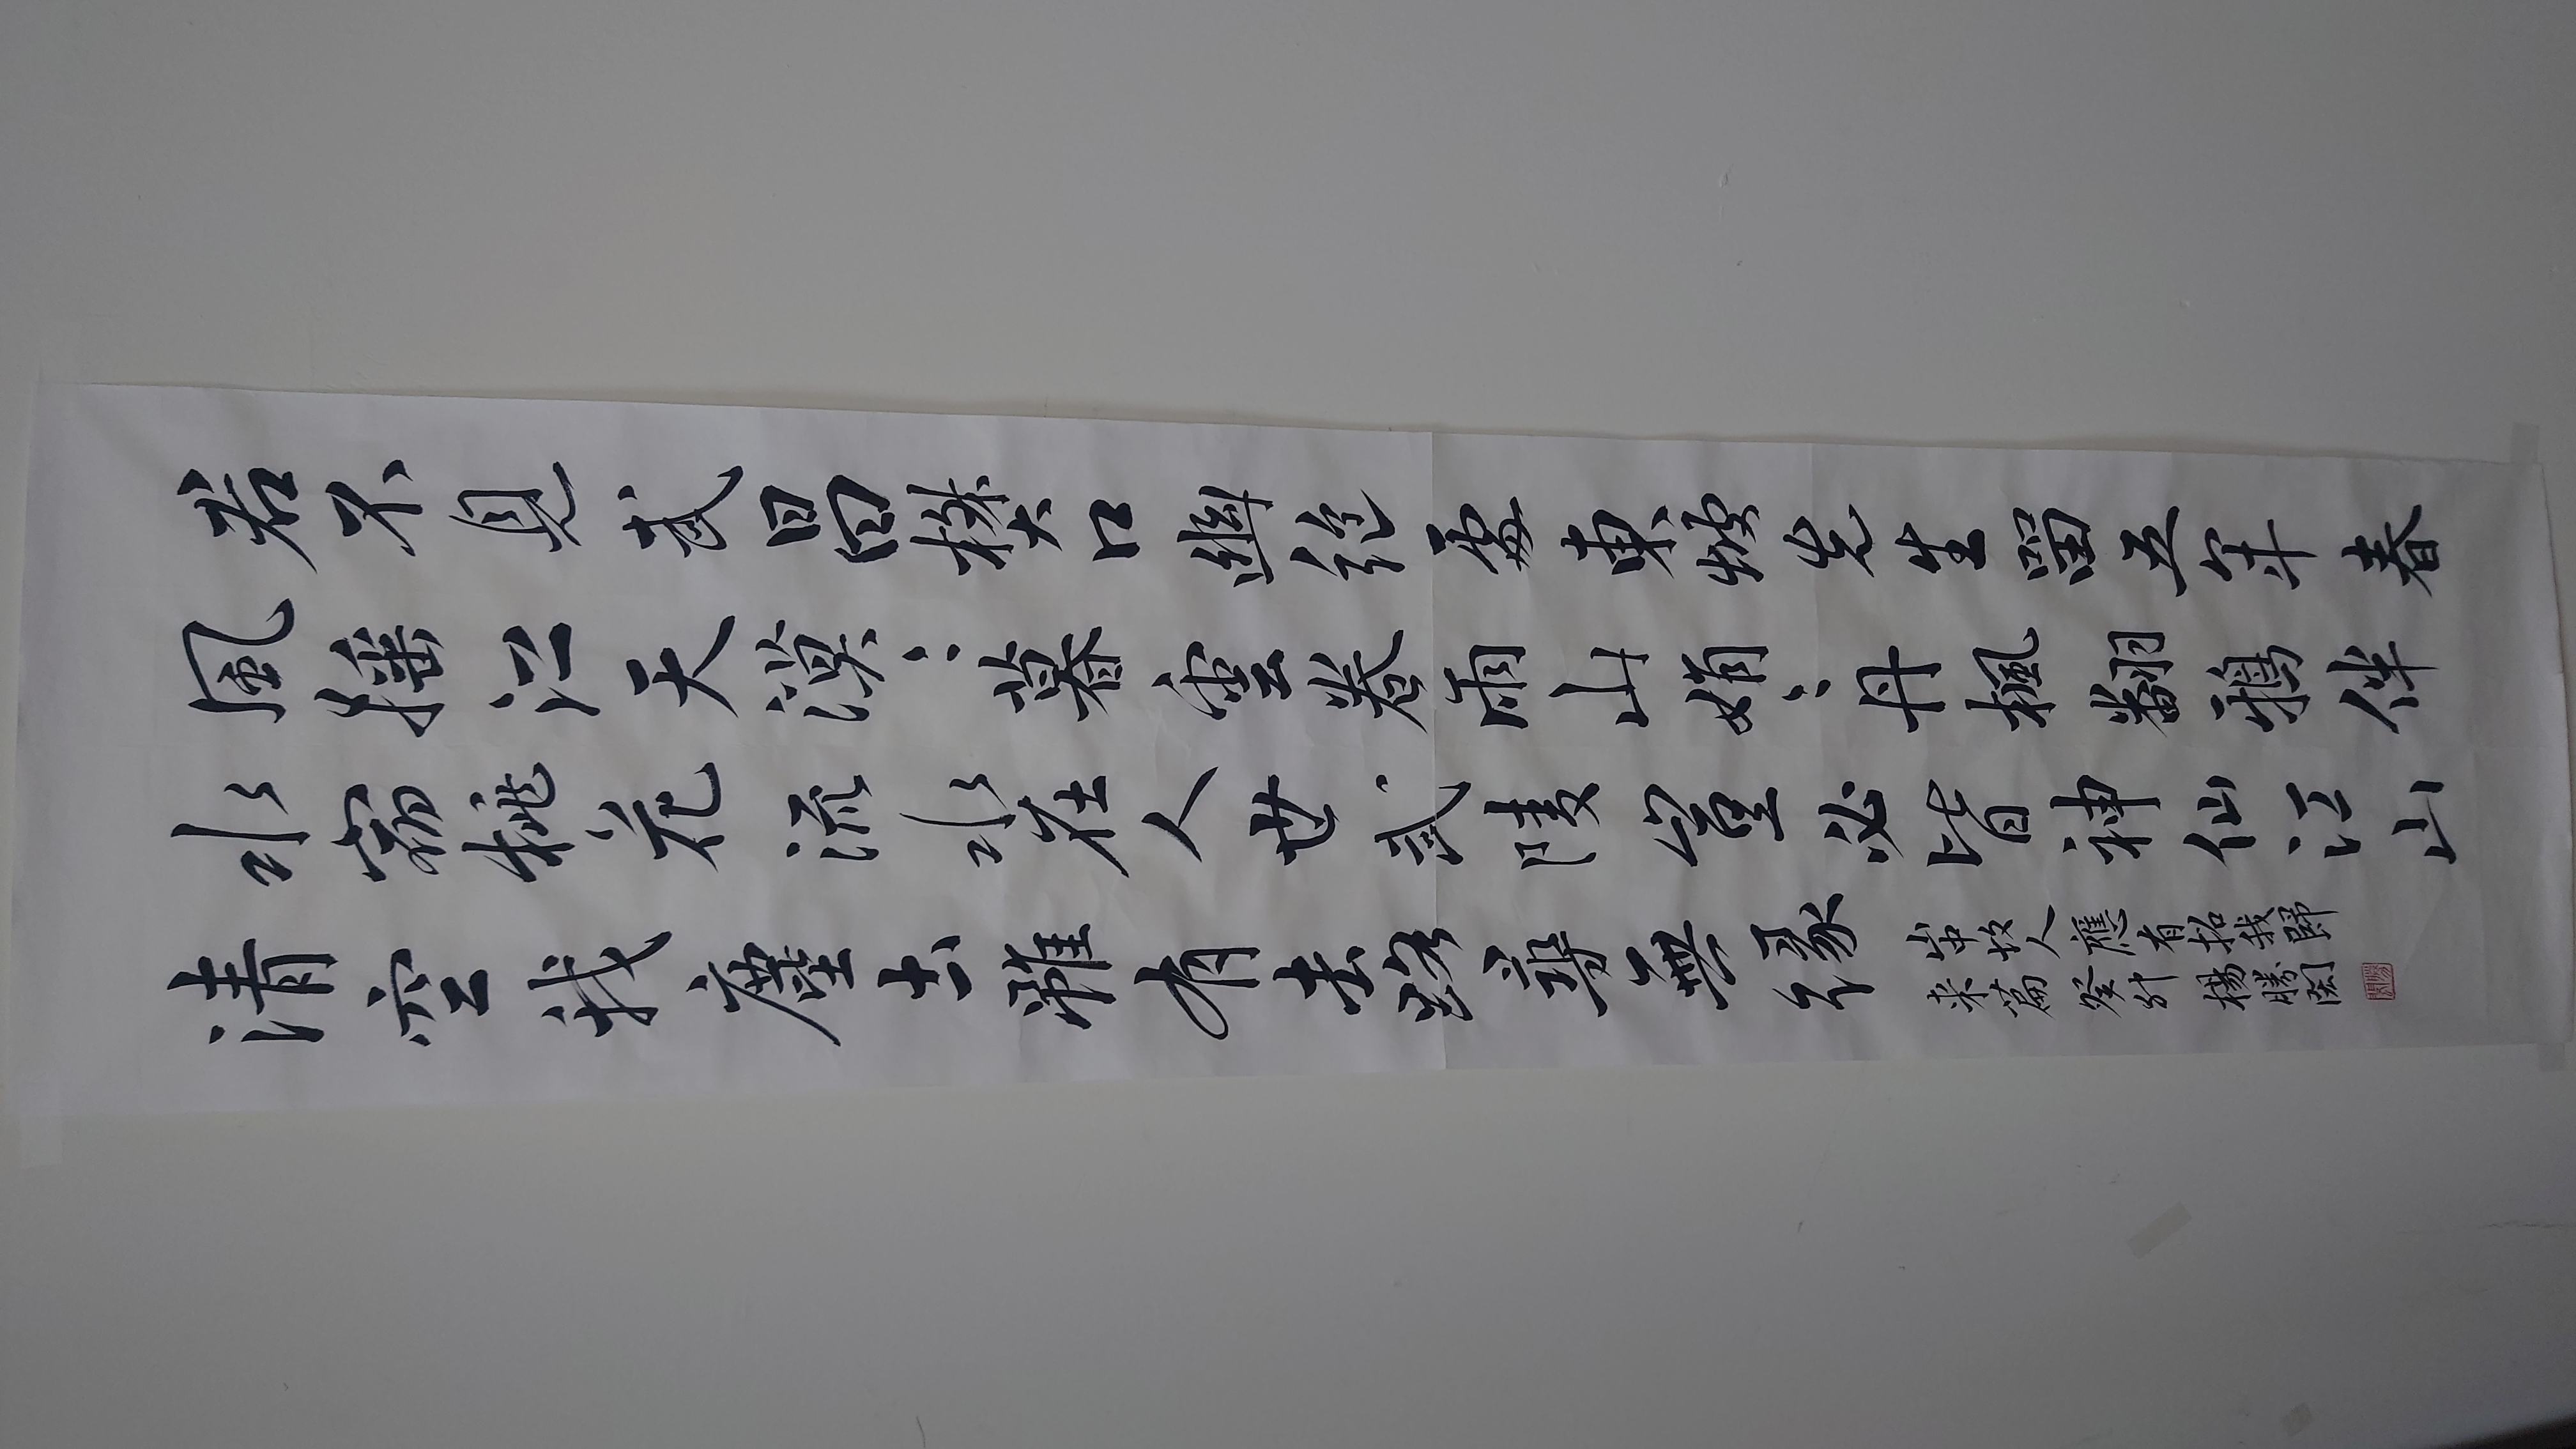 君不見武昌樊口幽絕處東坡先生留五年春
風搖江天漠〻暮雲卷雨山娟〻丹楓翻鴉伴
水宿桃花流水在人世武陵豈必皆神仙江山
清空我塵土雖有去路尋無緣
山中故人應有招我歸
来篇 癸卯 楊勝閎